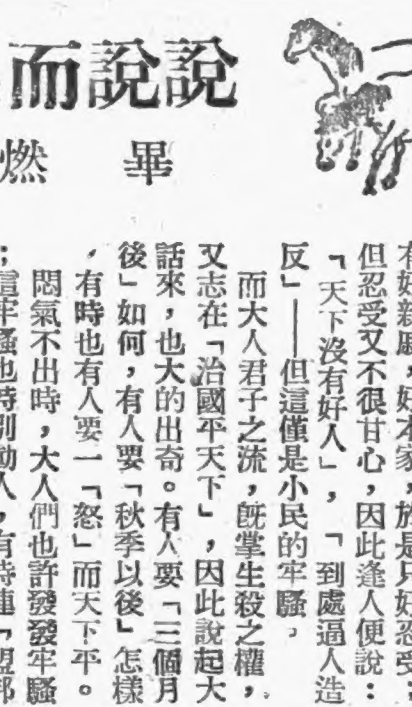 說說而
畢燃
有好親戚，好本家，於是只好忍受；
但忍受又不很甘心，因此逢人便說：
「天下沒有好人」，「到處逼人造
反」——但這僅是小民的牢騷，
而大人君子之流，旣掌生殺之權，
又志在「治國平天下」，因此說起大
話來，也大的出奇。有人要「三個月
後」如何，有人要「秋季以後」怎樣
，有時也有人要一「怒」而天下平。
悶氣不出時，大人們也許發發牢騷
；這牢騷也特別動人，有時連「盟邦